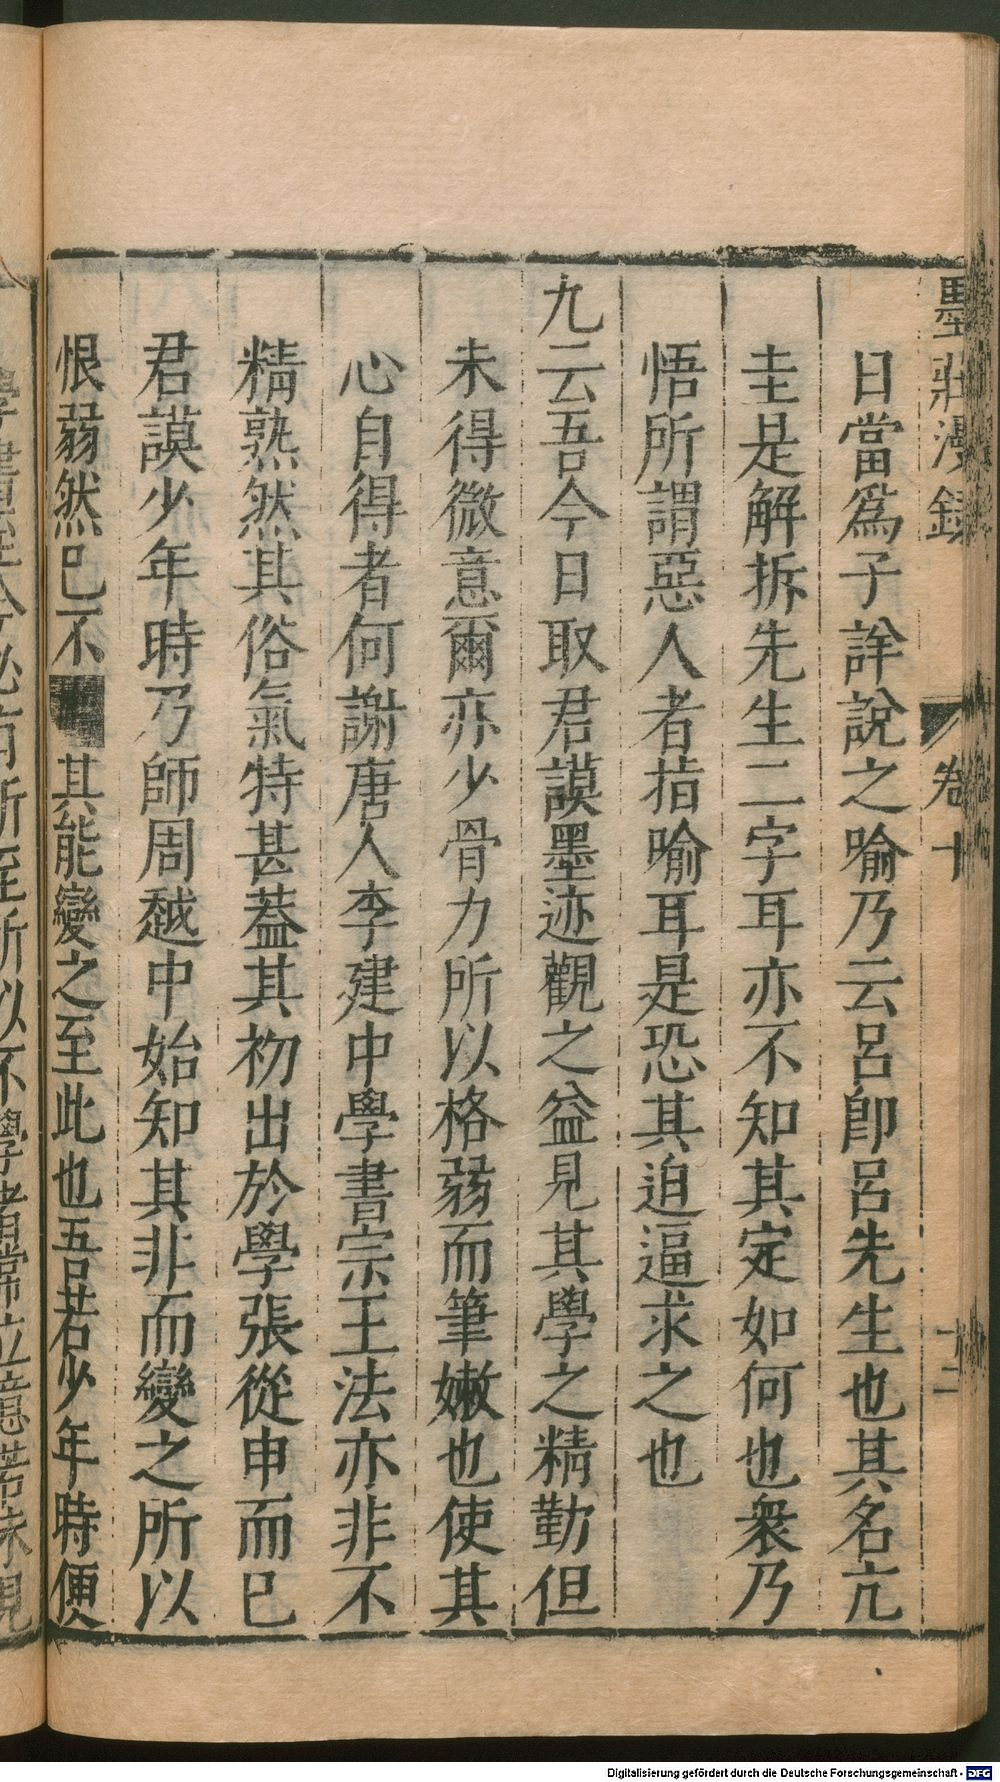 墨莊漫錄 卷十 十二
日當爲子詳說之喻乃云呂卽呂先生也其名亢
圭是解拆先生二字耳亦不知其定如何也衆乃
悟所謂惡人者指喻耳是恐其迫逼求之也
九云吾今日取君謨墨迹觀之益見其學之精勤但
未得微意爾亦少骨力所以格弱而筆嫩也使其
心自得者何謝唐人李建中學書宗王法亦非不
精熟然其俗氣特甚葢其初出於學張從申而已
君謨少年時乃師周越中始知其非而變之所以
恨弱然已不 其能變之至此也吾若少年時便
學建 必有所至所以不學者常立意若未見
Digitalisierung gefördert durch die Deutsche Forschungsgemeinschaft - DFG